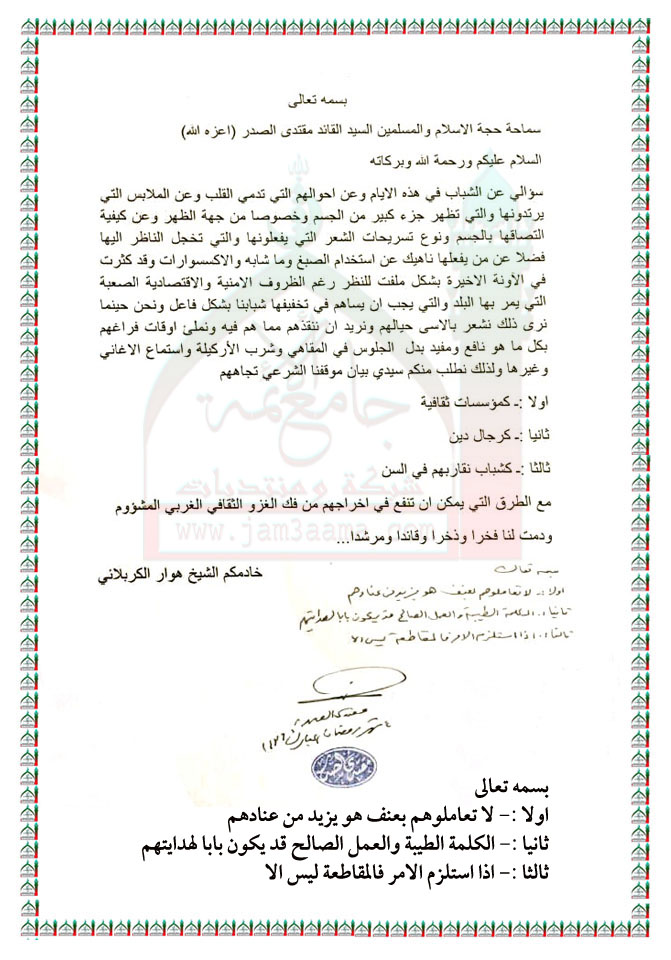 بسمه تعالى
سماحة حجة الاسلام والمسلمين السيد القائد مقتدى الصدر (اعزه الله)
السلام عليكم ورحمة الله وبركاته
سؤالي عن الشباب في هذه الايام وعن احوالهم التي تدمي القلب وعن الملابس التي
يرتدونها والتي تظهر جزء كبير من الجسم وخصوصا من جهة الظهر وعن كيفية
التصاقها بالجسم ونوع تسريحات الشعر التي يفعلونها والتي تخجل الناظر اليها
فضلا عن من يفعلها ناهيك عن استخدام الصبغ وما شابه والاكسسوارات وقد كثرت
في الآونة الاخيرة بشكل ملفت للنظر رغم الظروف الامنية والاقتصادية الصعبة
التي يمر بها البلد والتي يجب ان يساهم في تخفيفها شبابنا بشكل فاعل ونحن حينما
نرى ذلك نشعر بالاسى حيالهم ونريد ان ننقذهم مما هم فيه ونملئ اوقات فراغهم
بكل ما هو نافع ومفيد بدل الجلوس في المقاهي وشرب الأركيلة واستماع الاغاني
وغيرها ولذلك نطلب منكم سيدي بيان موقفنا الشرعي تجاههم
اولا :ـ كمؤسسات ثقافية
ثانيا :ـ كرجال دين
ثالثا :ـ كشباب نقاربهم في السن
مع الطرق التي يمكن ان تنفع في اخراجهم من فك الغزو الثقافي الغربي المشؤوم
ودمت لنا فخرا وذخرا وقائدا ومرشدا...
خادمكم الشيخ هوار الكربلاني
بسمه تعالى
اولا :- لا تعاملوهم بعنف هو يزيد من عنادهم
ثانيا :- الكلمة الطيبة والعمل الصالح قد يكون بابا لهدايتهم
ثالثا :- اذا استلزم الامر فالمقاطعة ليس الا
مقتدى الصدر
شهر رمضان المبارك
جامع ائمة
شبكة ومنتديات
www.jam3aama.com
بسمه تعالى
اولا :- لا تعاملوهم بعنف هو يزيد من عنادهم
ثانيا :- الكلمة الطيبة والعمل الصالح قد يكون بابا لهدايتهم
ثالثا :- اذا استلزم الامر فالمقاطعة ليس الا